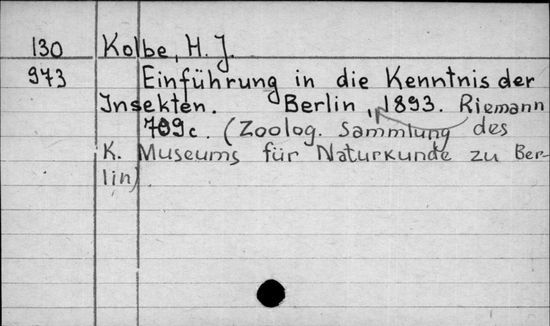 130 Kolbe, H. J.
973 Einführung in die Kenntnis der
Insekten. Berlin, 1893. Riemann
709c. (Zoolog. Sammlung des
K. Museums für Naturkunde zu Ber-
lin)